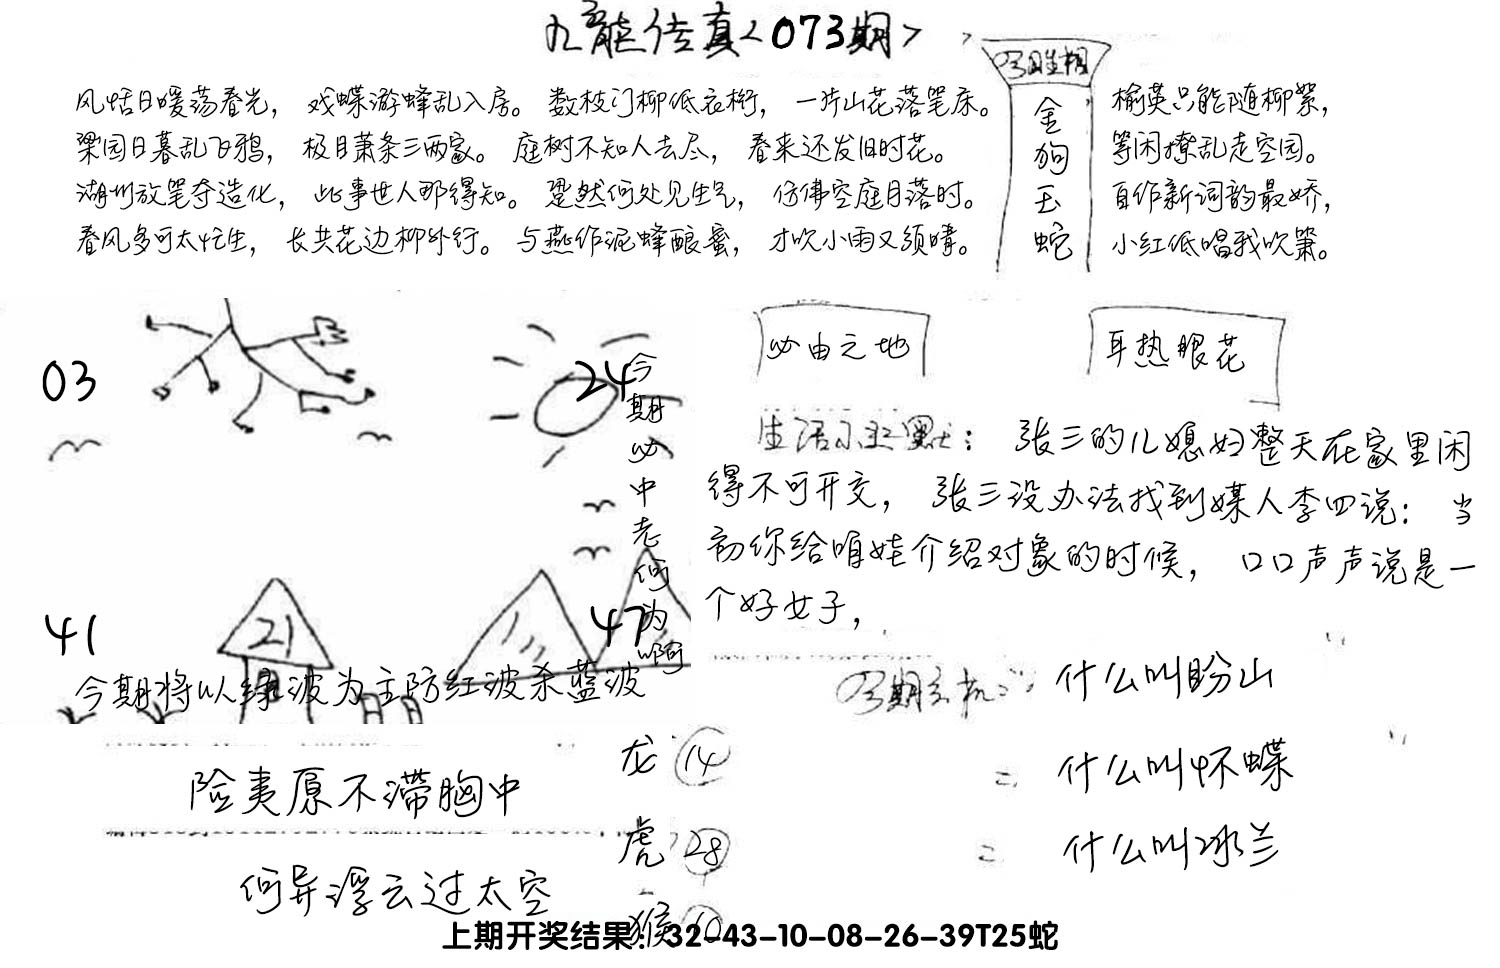 九龙传真<073期>
风恬日暖荡春光，戏蝶游蜂乱入房。数枝门柳低衣桁，一片山花落笔床。
梁园日暮乱飞鸦，极目萧条三两家。庭树不知人去尽，春来还发旧时花。
湖州放笔夺造化，此事世人那得知。跫然何处见生气，仿佛空庭月落时。
春风多可太忙生，长共花边柳外行。与燕作泥蜂酿蜜，才吹小雨又须晴。
金
狗
玉
蛇
榆荚只能随柳絮，
等闲撩乱走空园。
自作新词韵最娇，
小红低唱我吹箫。
03
24
41
47
21
今期必中老何为啊
今期将以绿波为主防红波杀蓝波
必由之地
耳热眼花
生活小幽默：张三的儿媳妇整天在家里闲
得不可开交，张三没办法找到媒人李四说：当
初你给咱娃介绍对象的时候，口口声声说是一
个好女子，
今期玄机：什么叫盼山
什么叫怀蝶
什么叫冰兰
险夷原不滞胸中
何异浮云过太空
龙 14
虎 28
猴 10
上期开奖结果：32-43-10-08-26-39T25蛇